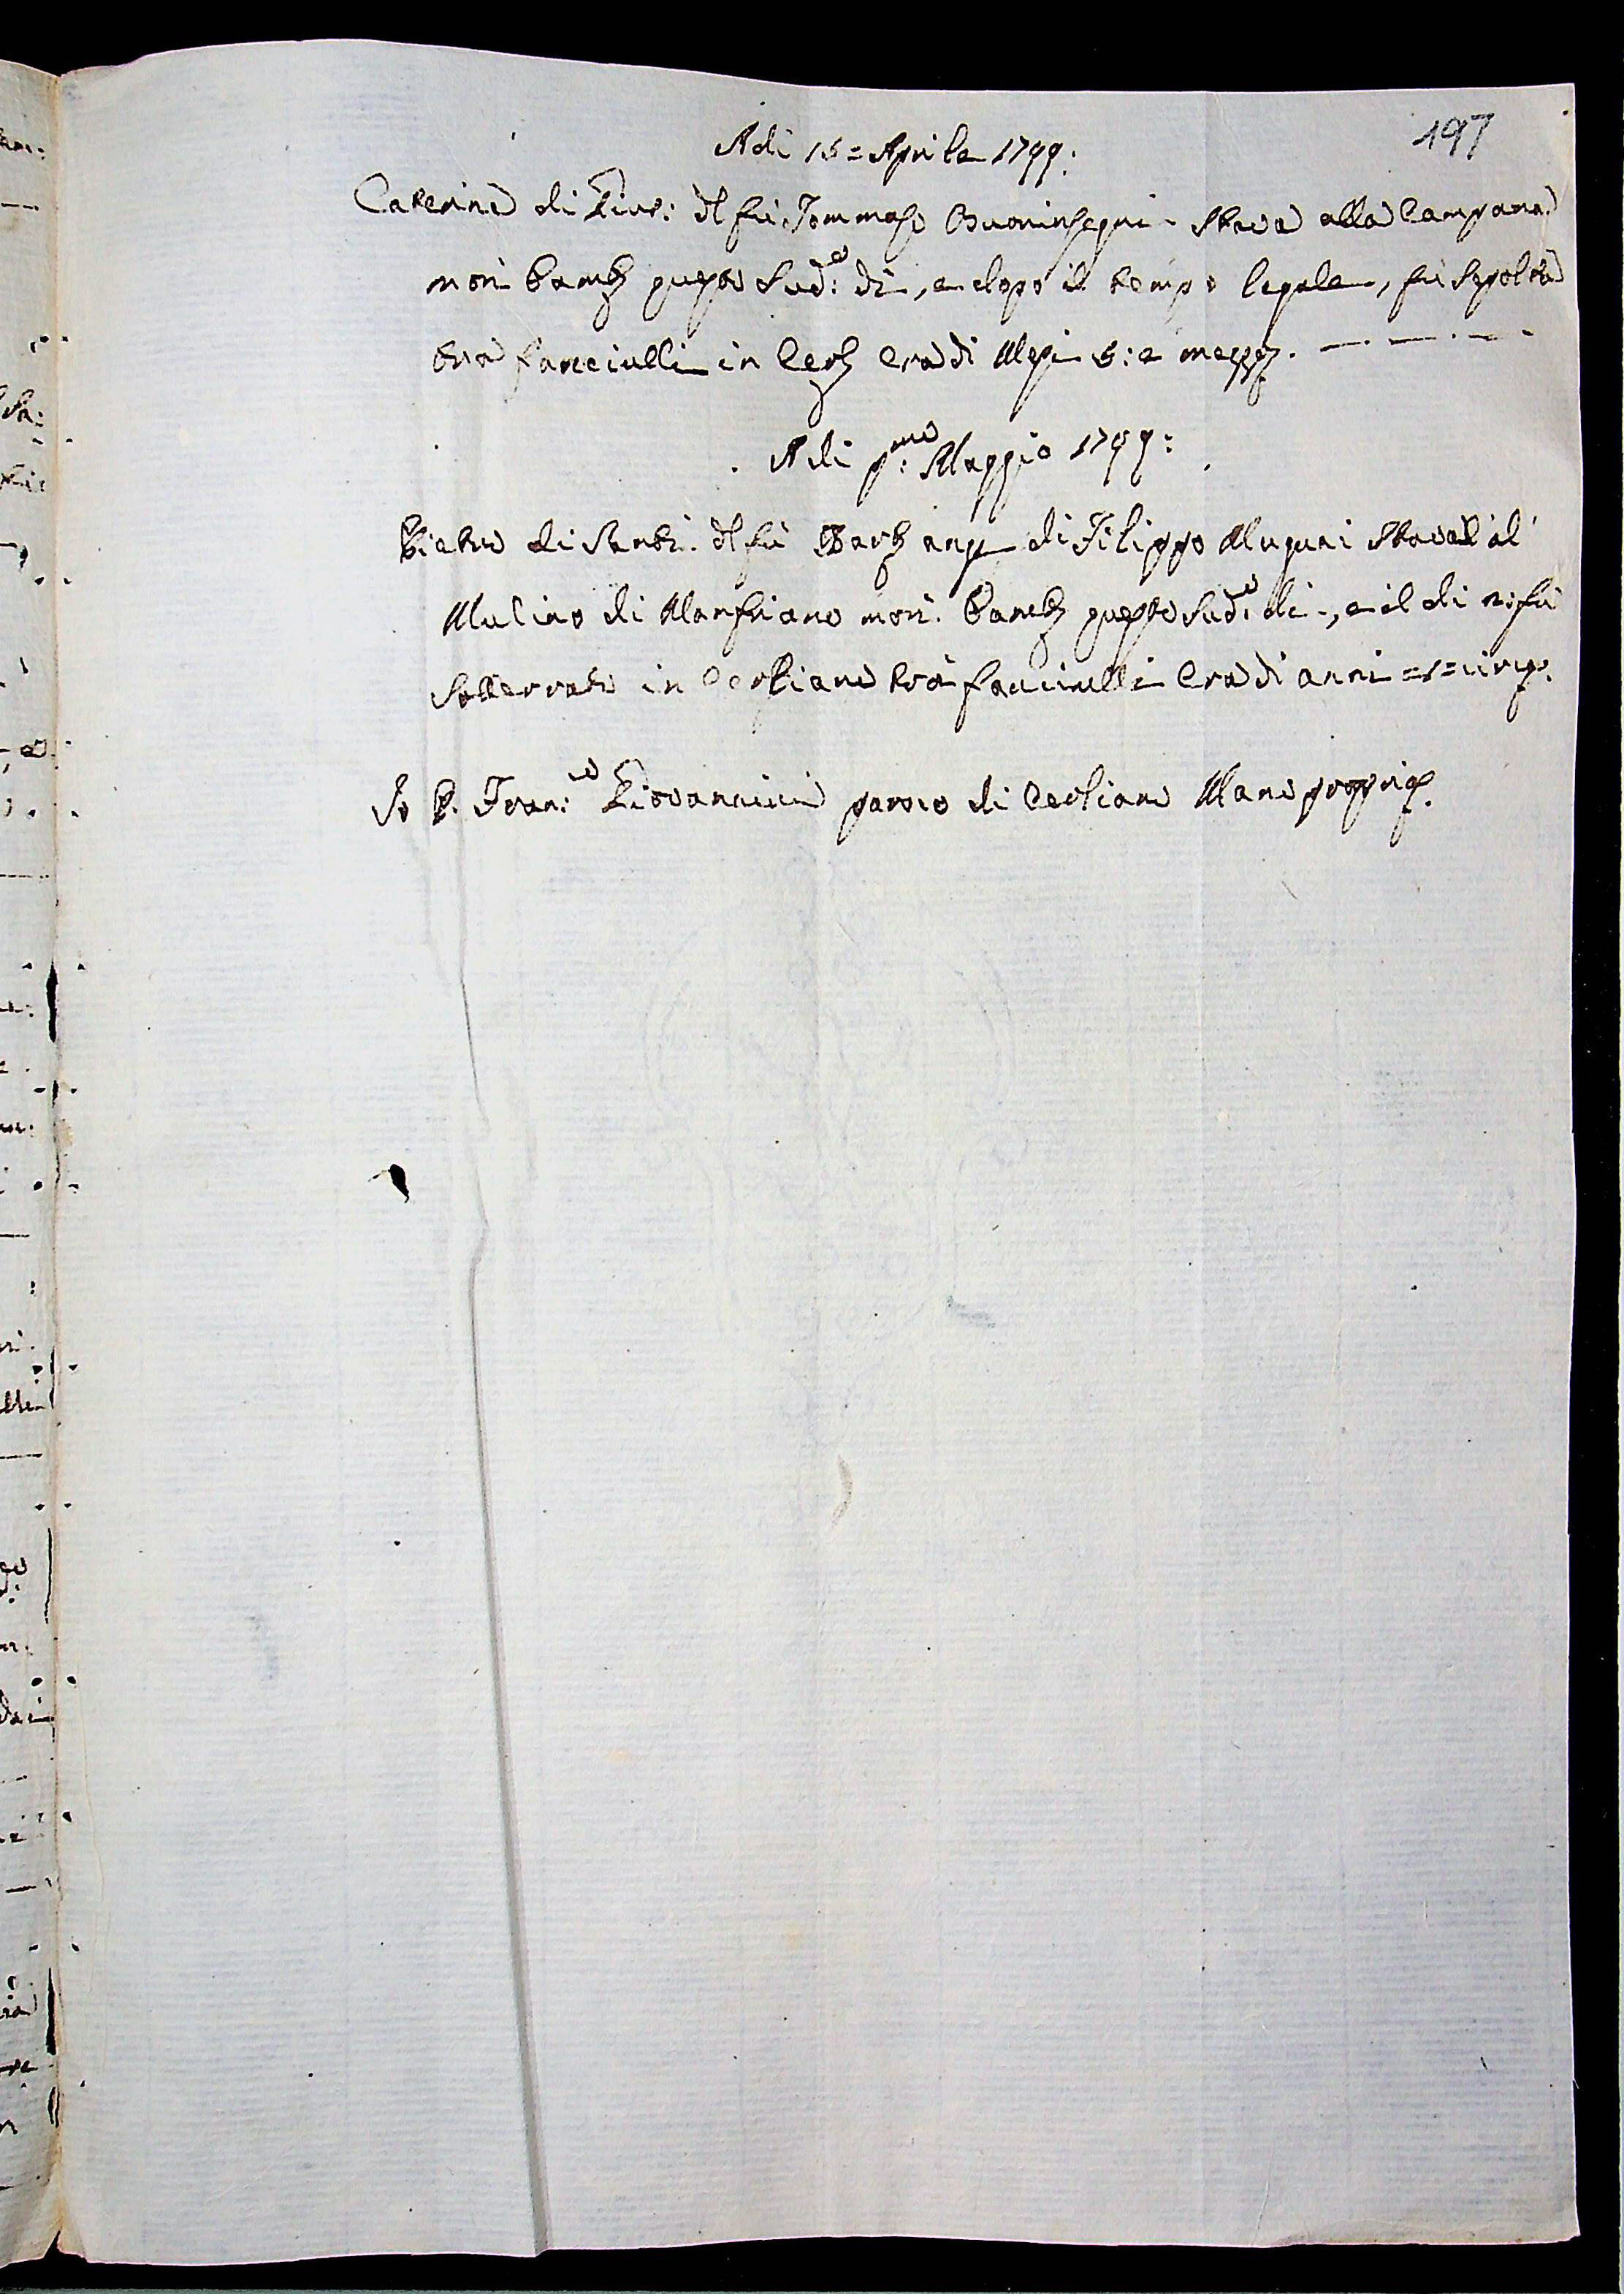 197
Adi 15 = Aprile 1799:
Caterina di Gius: del fu Tommaso Buoninsegni stava alla Campana
morì questo Sud:o dì, e dopo il tempo legale, fu sepolta
tra fanciulli in era di Mesi 5: e mezz.
Adi p:mo Maggio 1799:
Pietro di Santi del fu di Filippo Mugnai stava al
Mulino di Monfriano morì questo Sud:o di, e il di 2: fu
sotterrato in Certiano trà fanciulli era di anni =1= circ:
Io P. Fran:co Giovannini paroco di Certiano Mano propria